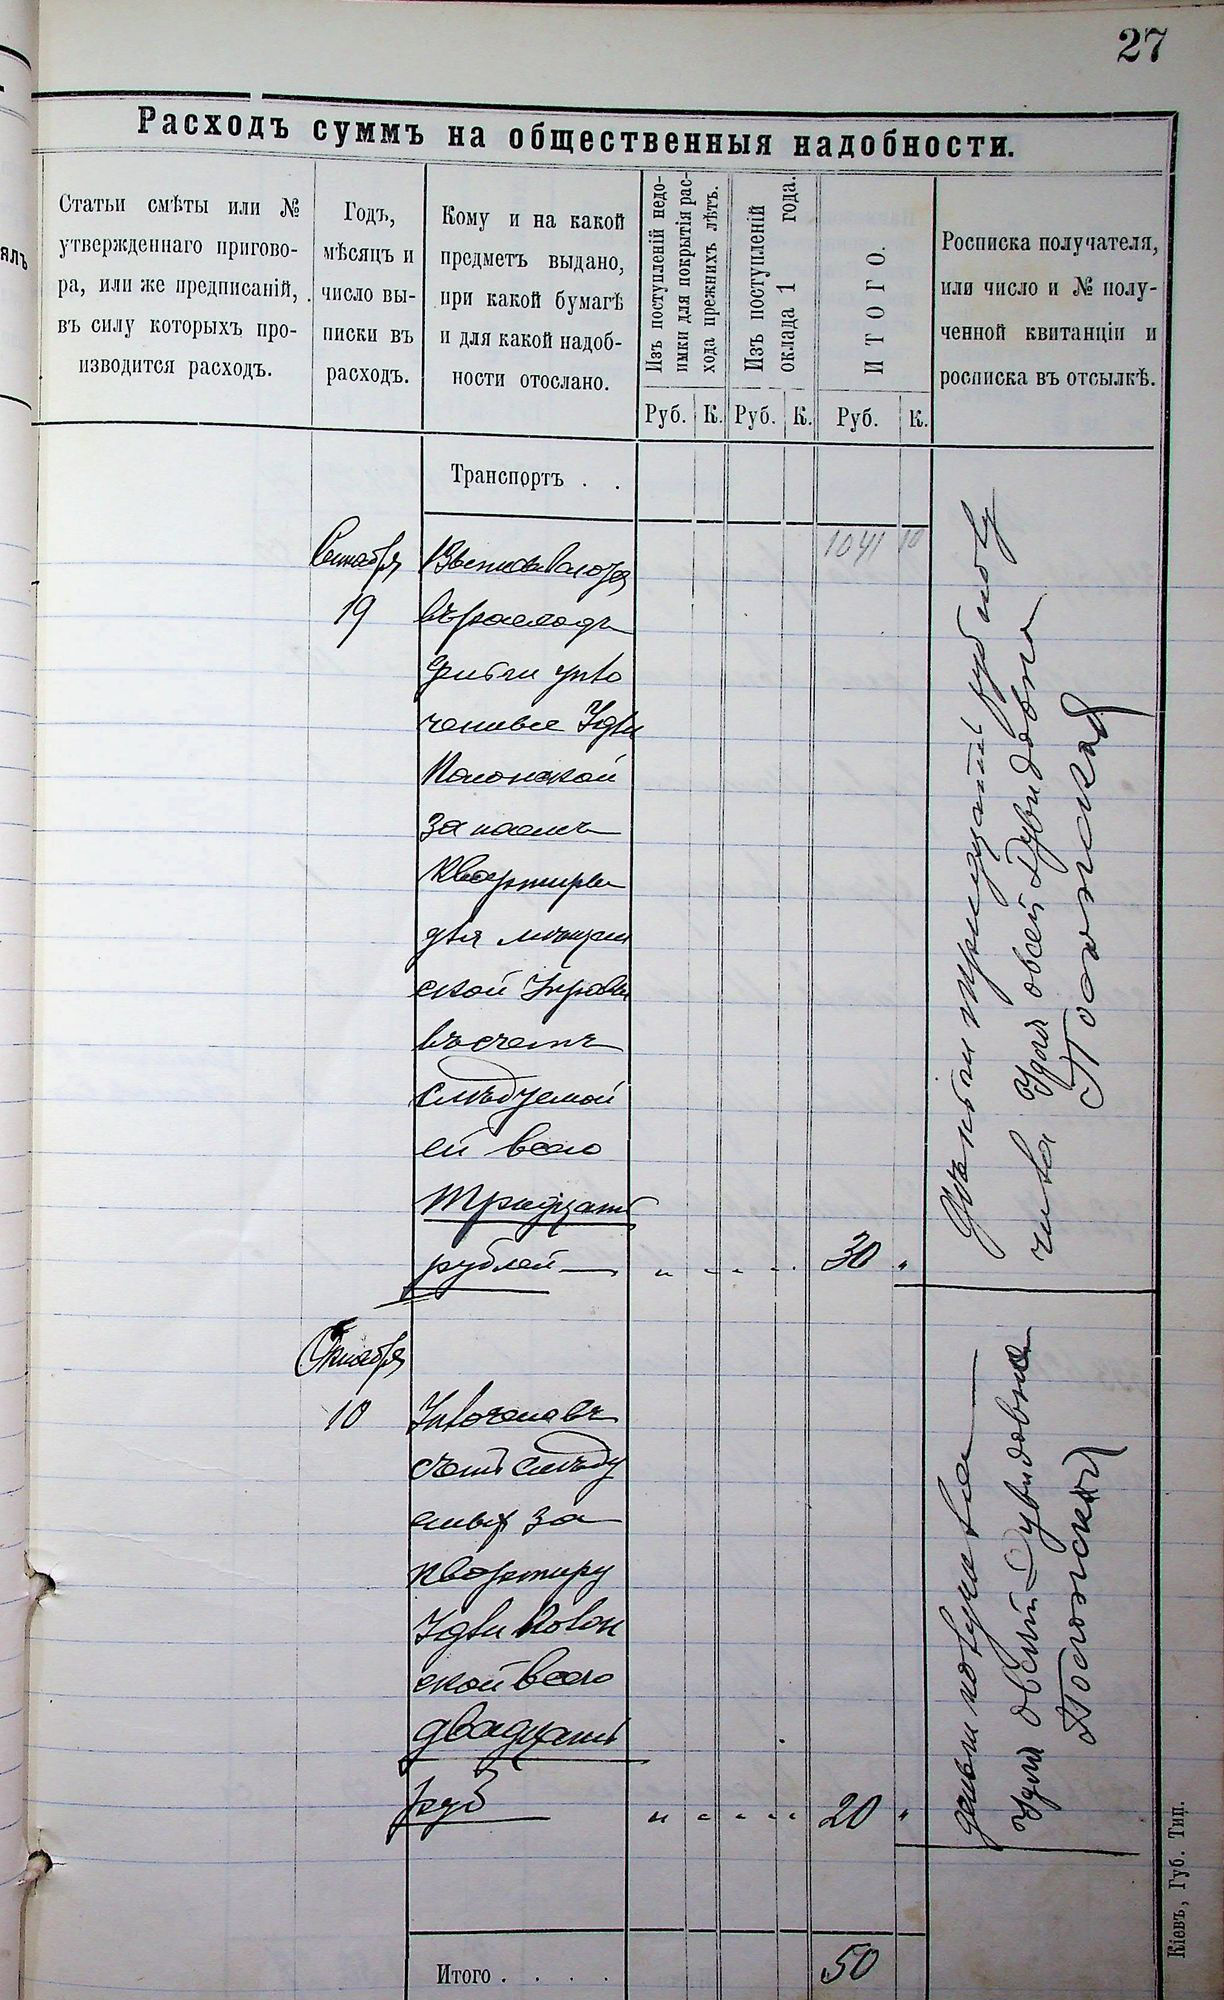 27
Расходъ суммъ на общественныя надобности.
Статьи смѣты или №
утвержденнаго пригово-
ра, или же предписаній,
въ силу которыхъ про-
изводится расходъ.
Годъ,
мѣсяцъ и
число вы-
писки въ
расходъ.
Кому и на какой
предметъ выдано,
при какой бумагѣ
и для какой надоб-
ности отослано.
Изъ поступленій недо-
имки для покрытія рас-
хода прежнихъ лѣтъ.
Изъ поступленій
оклада 1 года.
ИТОГО.
Росписка получателя,
или число и № полу-
ченной квитанціи и
росписка въ отсылкѣ.
Руб. К. Руб. К. Руб. К.
Транспортъ . .
1041 10
Сентября
19
въ расходъ
упло
ченные
Полонской
за наемъ
квартиры
для мѣщан
ской Управы
въ счетъ
слѣдуемой
ей всего
тридцать
рублей 30
Деньги тридцать руб полу
чила Овсей Дувидовна
Полонская
Октября
10
Уплочено въ
счетъ слѣду
емыхъ за
квартиру
Полон
ской всего
двадцать
руб 20
деньги получила
Овсей Дувидовна
Полонская
Итого . . . . 50
Кіевъ, Губ. Тип.